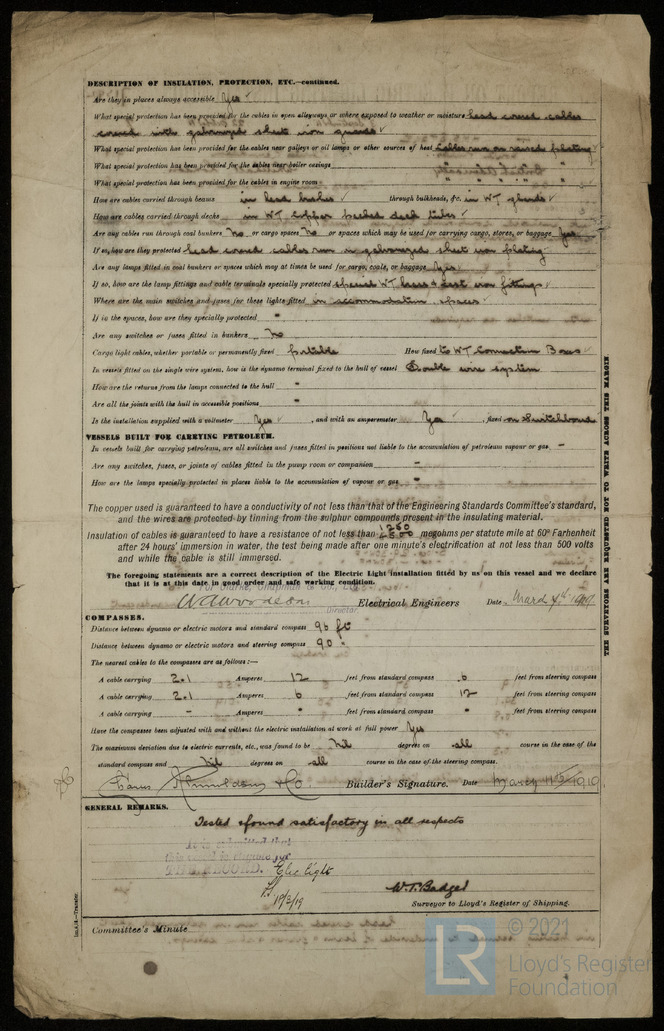 DESCRIPTION OF INSULATION, PROTECTION, ETC.—continued.
Are they in places always accessible Yes ✓
What special protection has been provided for the cables in open alleyways or where exposed to weather or moisture lead covered cables
covered with galvanized sheet iron guards ✓
What special protection has been provided for the cables near galleys or oil lamps or other sources of heat Cables run on raised plating ✓
What special protection has been provided for the cables near boiler casings " " " "
What special protection has been provided for the cables in engine room " " " "
How are cables carried through beams in lead bushes ✓ through bulkheads, &c. in WT glands ✓
How are cables carried through decks in WT Copper beeded deck tubes ✓
Are any cables run through coal bunkers No or cargo spaces No or spaces which may be used for carrying cargo, stores, or baggage Yes
If so, how are they protected lead covered cables run in galvanized sheet iron plating
Are any lamps fitted in coal bunkers or spaces which may at times be used for cargo, coals, or baggage Yes
If so, how are the lamp fittings and cable terminals specially protected special WT brass & cast iron fittings ✓
Where are the main switches and fuses for these lights fitted in accommodation spaces
If in the spaces, how are they specially protected "
Are any switches or fuses fitted in bunkers No
Cargo light cables, whether portable or permanently fixed portable How fixed to WT Connection Boxes ✓
In vessels fitted on the single wire system, how is the dynamo terminal fixed to the hull of vessel Double wire system
How are the returns from the lamps connected to the hull "
Are all the joints with the hull in accessible positions "
Is the installation supplied with a voltmeter Yes ✓, and with an amperemeter Yes ✓, fixed on Switchboard
VESSELS BUILT FOR CARRYING PETROLEUM.
In vessels built for carrying petroleum, are all switches and fuses fitted in positions not liable to the accumulation of petroleum vapour or gas. -
Are any switches, fuses, or joints of cables fitted in the pump room or companion -
How are the lamps specially protected in places liable to the accumulation of vapour or gas -
The copper used is guaranteed to have a conductivity of not less than that of the Engineering Standards Committee's standard,
and the wires are protected by tinning from the sulphur compounds present in the insulating material.
1250
Insulation of cables is guaranteed to have a resistance of not less than megohms per statute mile at 60° Farhenheit
after 24 hours' immersion in water, the test being made after one minute's electrification at not less than 500 volts
and while the cable is still immersed.
The foregoing statements are a correct description of the Electric Light installation fitted by us on this vessel and we declare
that it is at this date in good order and safe working condition.
For Clarke, Chapman & Co., Ltd.,
Electrical Engineers Date March 4th 1919
Director
COMPASSES.
Distance between dynamo or electric motors and standard compass 96 ft
Distance between dynamo or electric motors and steering compass 90 "
The nearest cables to the compasses are as follows:—
A cable carrying 2.1 Amperes 12 feet from standard compass 6 feet from steering compass
A cable carrying 2.1 Amperes 6 feet from standard compass 12 feet from steering compass
A cable carrying - Amperes " feet from standard compass " feet from steering compass
Have the compasses been adjusted with and without the electric installation at work at full power Yes
The maximum deviation due to electric currents, etc., was found to be Nil degrees on all course in the case of the
standard compass and Nil degrees on all course in the case of the steering compass.
& Co. Builder's Signature. Date March 1919.
GENERAL REMARKS.
Tested & found satisfactory in all respects
It is submitted that
this vessel is eligible for
THE RECORD. Elec light
19/3/19
W.T. Badger
Surveyor to Lloyd's Register of Shipping.
Committee's Minute
THE SURVEYORS ARE REQUESTED NOT TO WRITE ACROSS THIS MARGIN
LR © 2021
Lloyd's Register
Foundation